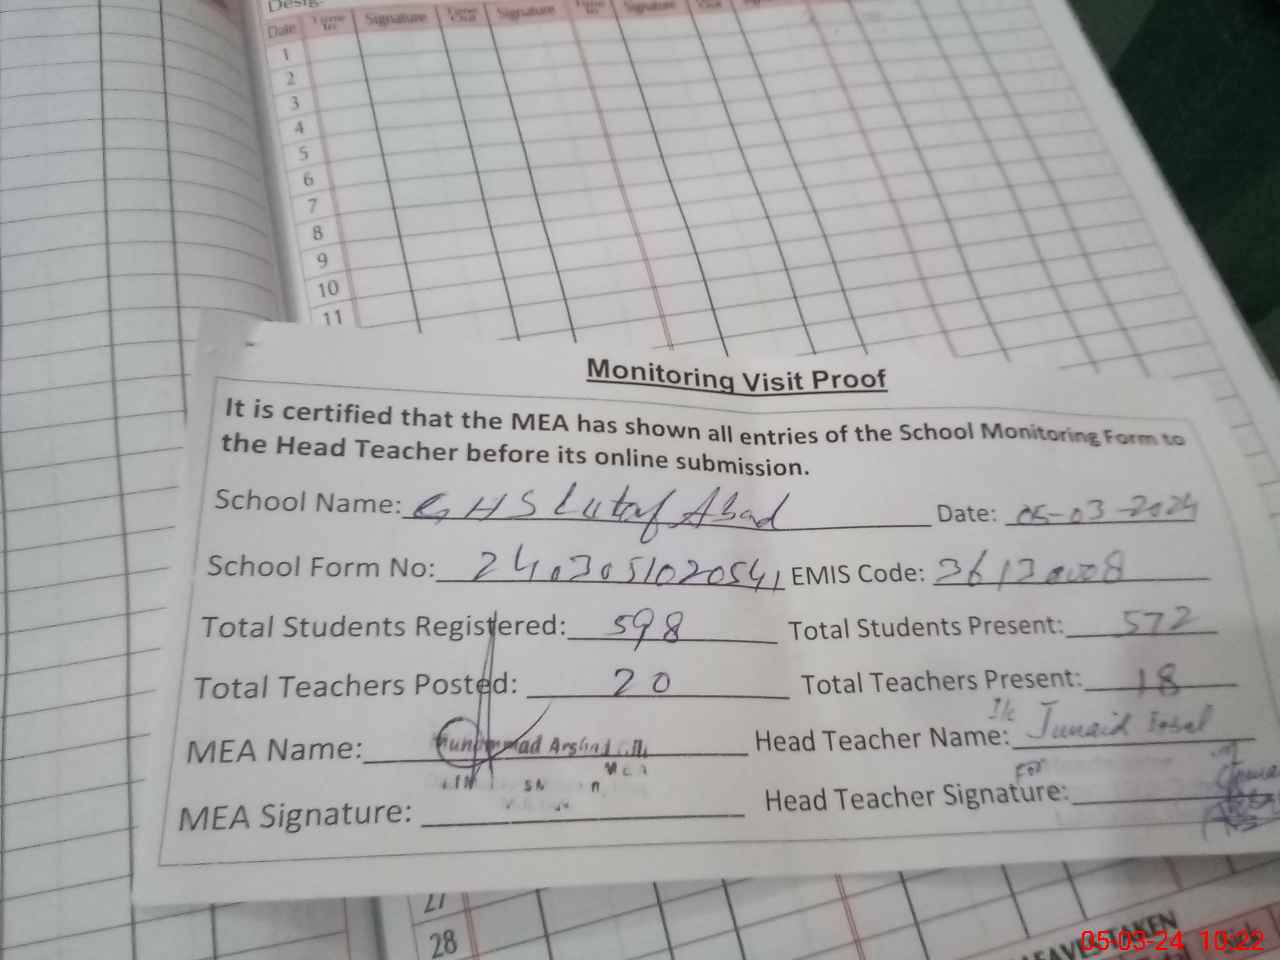 Desig-
Date Time In Signature Time Out Signature Time In Signature Out
1
2
3
4
5
6
7
8
9
10
11
Monitoring Visit Proof
It is certified that the MEA has shown all entries of the School Monitoring Form to
the Head Teacher before its online submission.
School Name: GHS Lutaf Abad Date: 05-03-2024
School Form No: 240305102054, EMIS Code: 36130008
Total Students Registered: 598 Total Students Present: 572
Total Teachers Posted: 20 Total Teachers Present: 18
MEA Name: Muhammad Arshad Head Teacher Name: I/c Junaid
MEA Signature: Head Teacher Signature: For
27
28
LEAVES TAKEN
05-03-24 10:22